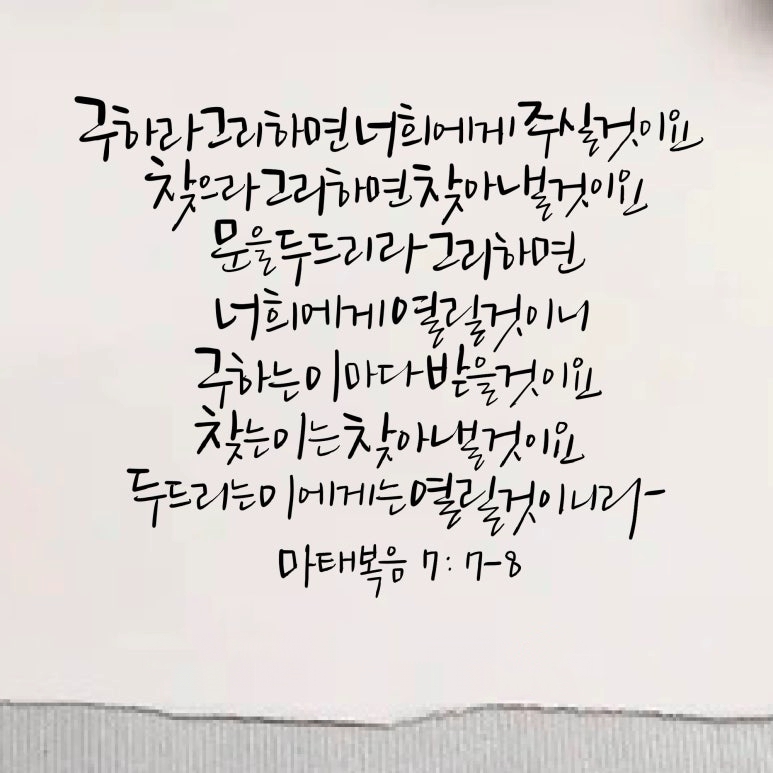 구하라 그리하면 너희에게 주실것이요
찾으라 그리하면 찾아낼것이요
문을 두드리라 그리하면
너희에게 열릴것이니
구하는 이마다 받을것이요
찾는이는 찾아낼것이요
두드리는 이에게는 열릴것이니라-
마태복음 7: 7-8